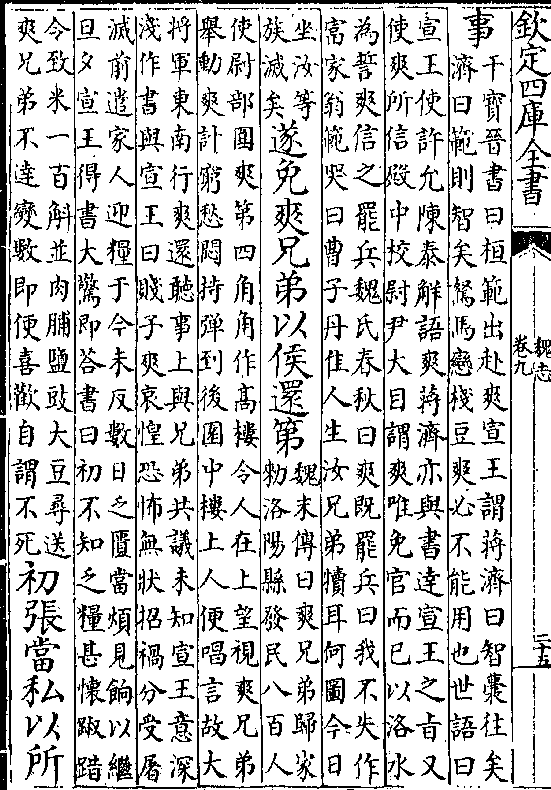 欽定四庫全書
魏志
卷九
二十五
事
干寶晉書曰桓範出赴爽宣王謂蔣濟曰智囊往矣
濟曰範則智矣駑馬戀棧豆爽必不能用也世語曰
宣王使許允陳泰解語爽蔣濟亦與書達宣王之旨又
使爽所信殿中校尉尹大目謂爽唯免官而已以洛水
為誓爽信之罷兵魏氏春秋曰爽既罷兵曰我不失作
富家翁範哭曰曹子丹佳人生汝兄弟犢耳何圖今日
坐汝等
族滅矣
遂免爽兄弟以侯還第
魏末傳曰爽兄弟歸家
勑洛陽縣發民八百人
使尉部圍爽第四角角作高樓令人在上望視爽兄弟
舉動爽計窮愁悶持彈到後園中樓上人便唱言故大
將軍東南行爽還聽事上與兄弟共議未知宣王意深
淺作書與宣王曰賤子爽哀惶恐怖無狀招禍分受屠
滅前遣家人迎糧于今未反數日乏匱當煩見餉以繼
旦夕宣王得書大驚即答書曰初不知乏糧甚懷踧踖
令致米一百斛並肉脯鹽豉大豆尋送
爽兄弟不達變數即便喜歡自謂不死
初張當私以所